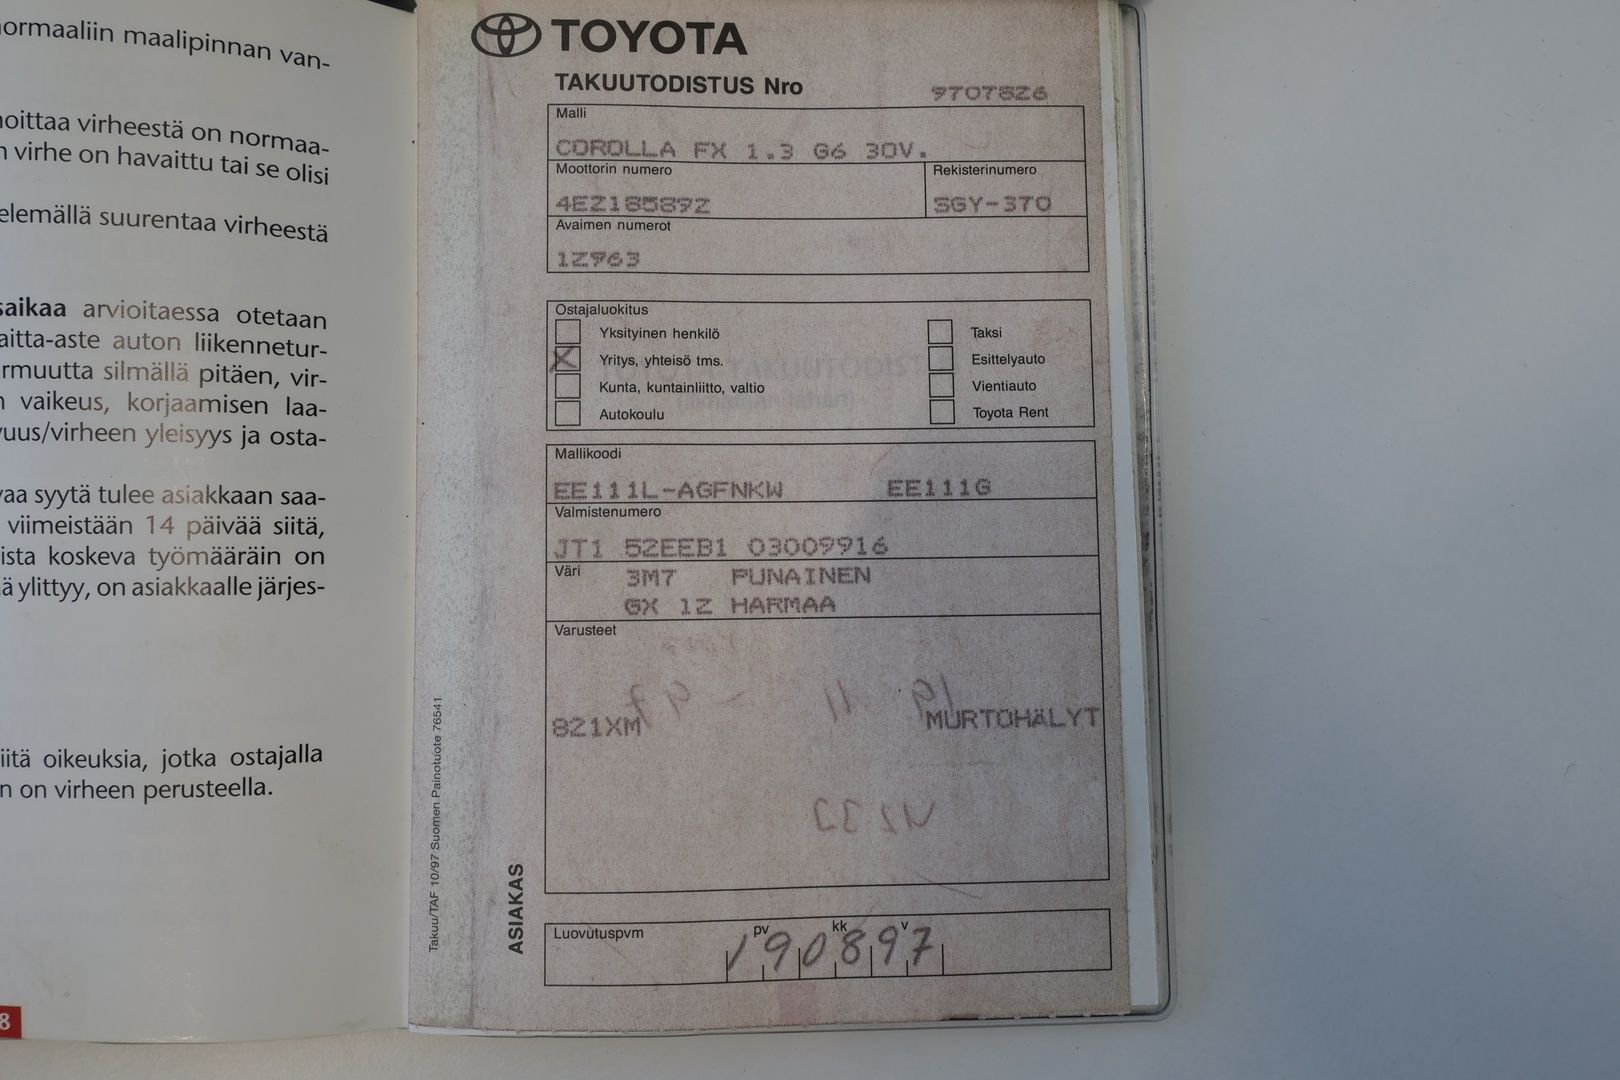 ormaaliin maalipinnan van-
oittaa virheestä on normaa-
n virhe on havaittu tai se olisi
elemällä suurentaa virheestä
saikaa arvioitaessa otetaan
aitta-aste auton liikennetur-
rmuutta silmällä pitäen, vir-
n vaikeus, korjaamisen laa-
vuus/virheen yleisyys ja osta-
vaa syytä tulee asiakkaan saa-
viimeistään 14 päivää siitä,
ista koskeva työmääräin on
ä ylittyy, on asiakkaalle järjes-
iitä oikeuksia, jotka ostajalla
n on virheen perusteella.
8
TOYOTA
TAKUUTODISTUS Nro 9707826
Malli
COROLLA FX 1.3 G6 3OV.
Moottorin numero Rekisterinumero
4E2185892 SGY-370
Avaimen numerot
12963
Ostajaluokitus
Yksityinen henkilö Taksi
X Yritys, yhteisö tms. Esittelyauto
Kunta, kuntainliitto, valtio Vientiauto
Autokoulu Toyota Rent
Mallikoodi
EE111L-AGFNKW EE111G
Valmistenumero
JT1 52EEB1 03009916
Väri 3M7 PUNAINEN
GX 12 HARMAA
Varusteet
821XM MURTOHÄLYT
Luovutuspvm pv kk v
190897
ASIAKAS
Takuu/TAF 10/97 Suomen Painotuote 76541